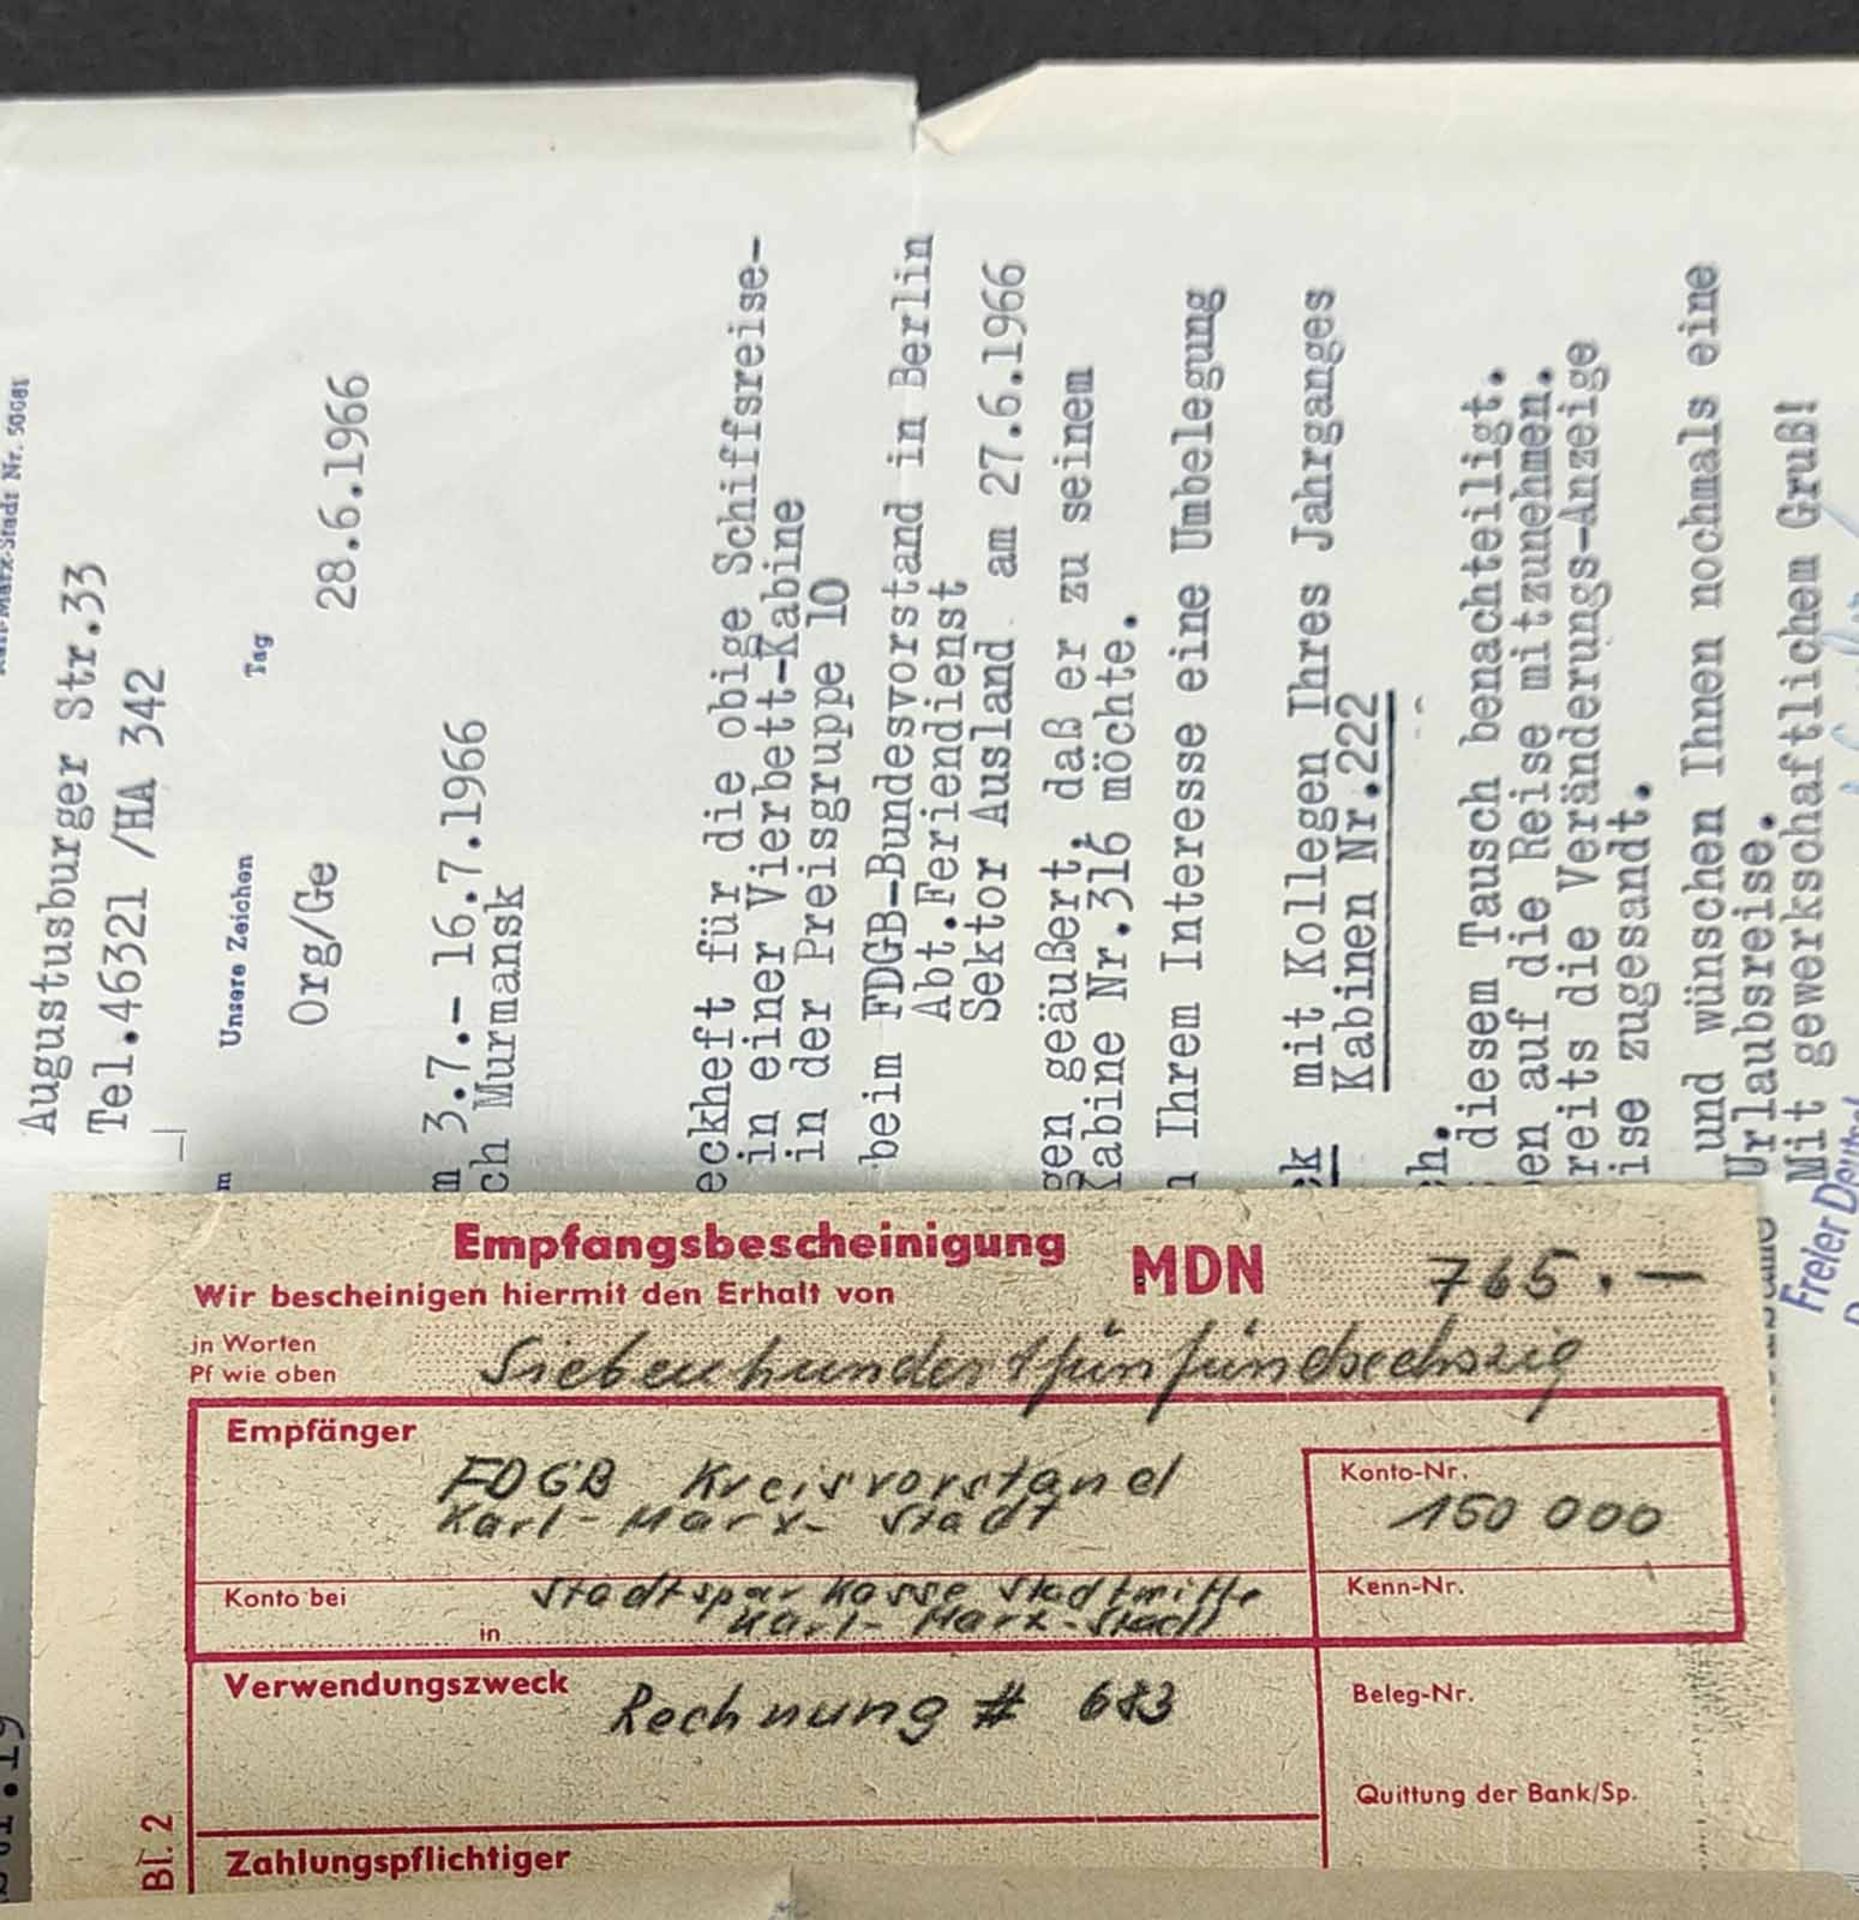 Karl-Marx-Stadt Nr. 50081
Augustusburger Str.33
Tel.46321 /HA 342
Unsere Zeichen Tag
Org/Ge 28.6.1966
m 3.7.- 16.7.1966
ch Murmansk
eckheft für die obige Schiffsreise-
in einer Vierbett-Kabine
in der Preisgruppe 10
beim FDGB-Bundesvorstand in Berlin
Abt.Feriendienst
Sektor Ausland am 27.6.1966
gen geäußert, daß er zu seinem
Kabine Nr.316 möchte.
n Ihrem Interesse eine Umbelegung
ck mit Kollegen Ihres Jahrganges
Kabinen Nr.222
ch.
diesem Tausch benachteiligt.
en auf die Reise mitzunehmen.
reits die Veränderungs-Anzeige
ise zugesandt.
und wünschen Ihnen nochmals eine
Urlaubsreise.
Mit gewerkschaftlichem Gruß!
Freier Deutsch
Empfangsbescheinigung
Wir bescheinigen hiermit den Erhalt von MDN 765.—
in Worten
Pf wie oben
Siebenhundertfünfündsechszig
Empfänger
FDGB Kreisvorstand
Karl-Marx-Stadt
Konto-Nr.
150 000
Konto bei Stadtsparkasse Stadtmitte
in Karl-Marx-Stadt
Kenn-Nr.
Verwendungszweck Rechnung # 683
Beleg-Nr.
Quittung der Bank/Sp.
Bl. 2
Zahlungspflichtiger